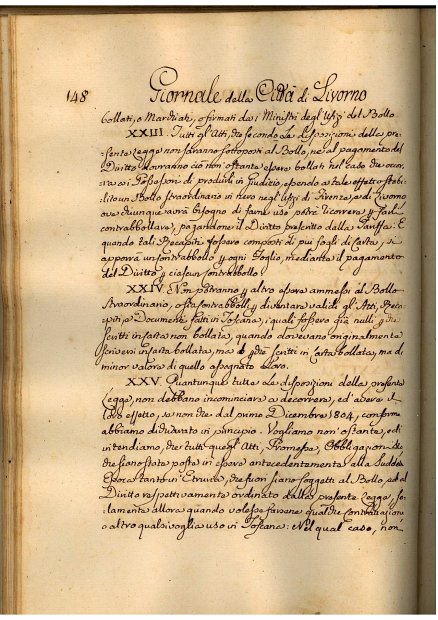 148 Giornale della Città di Livorno
bollati, o Marchiati, o firmati dai Ministri degl'Ufizi del Bollo.
XXIII. Tutti gl'Atti, che secondo le disposizioni della pre-
sente Legge non saranno sottoposti al Bollo, nè al pagamento del
Diritto dovranno ciò non ostante essere bollati nel caso che occor-
ra ai Possessori di produrli in Giudizio, essendo a tale effetto stabi-
lito un Bollo straordinario in nero negl'Ufizi di Firenze, e di Livorno
ove chiunque avrà bisogno di farne uso potrà ricorrere farli
contrabbollare, pagandone il Diritto prescritto dalla Tariffa: E
quando tali Recapiti fossero composti di più fogli di Carta, si
apporrà un contrabbollo ogni Foglio, mediante il pagamento
del Diritto ciascun contrabbollo.
XXIV. Non potranno altro essere ammessi al Bollo
straordinario, o sia contrabbollo diventare validi gl'Atti, Reca-
piti, o Documenti fatti in Toscana, i quali fossero già nulli
scritti in carta non bollata, quando dovevano originalmente
scriversi in carta bollata, ma o scritti in Carta bollata, ma di
minor valore di quello assegnato Loro.
XXV. Quantunque tutte le disposizioni della presente
Legge, non debbano incominciare a decorrere, ed avere il
loro effetto, se non che dal primo Dicembre 1804, conforme
abbiamo dichiarato in principio. Vogliamo non ostante, ed
intendiamo, che tutti quegl'Atti, Promesse, Obbligazioni
che siano state poste in essere antecedentemente alla Suddª
Epoca tanto in Etruria, che fuori siano soggetti al Bollo, ed al
Diritto respettivamente ordinato dalla presente Legge, so-
lamente allora quando volesse farsene qualche Contrattazione
o altro qualsivoglia uso in Toscana: Nel qual caso, non